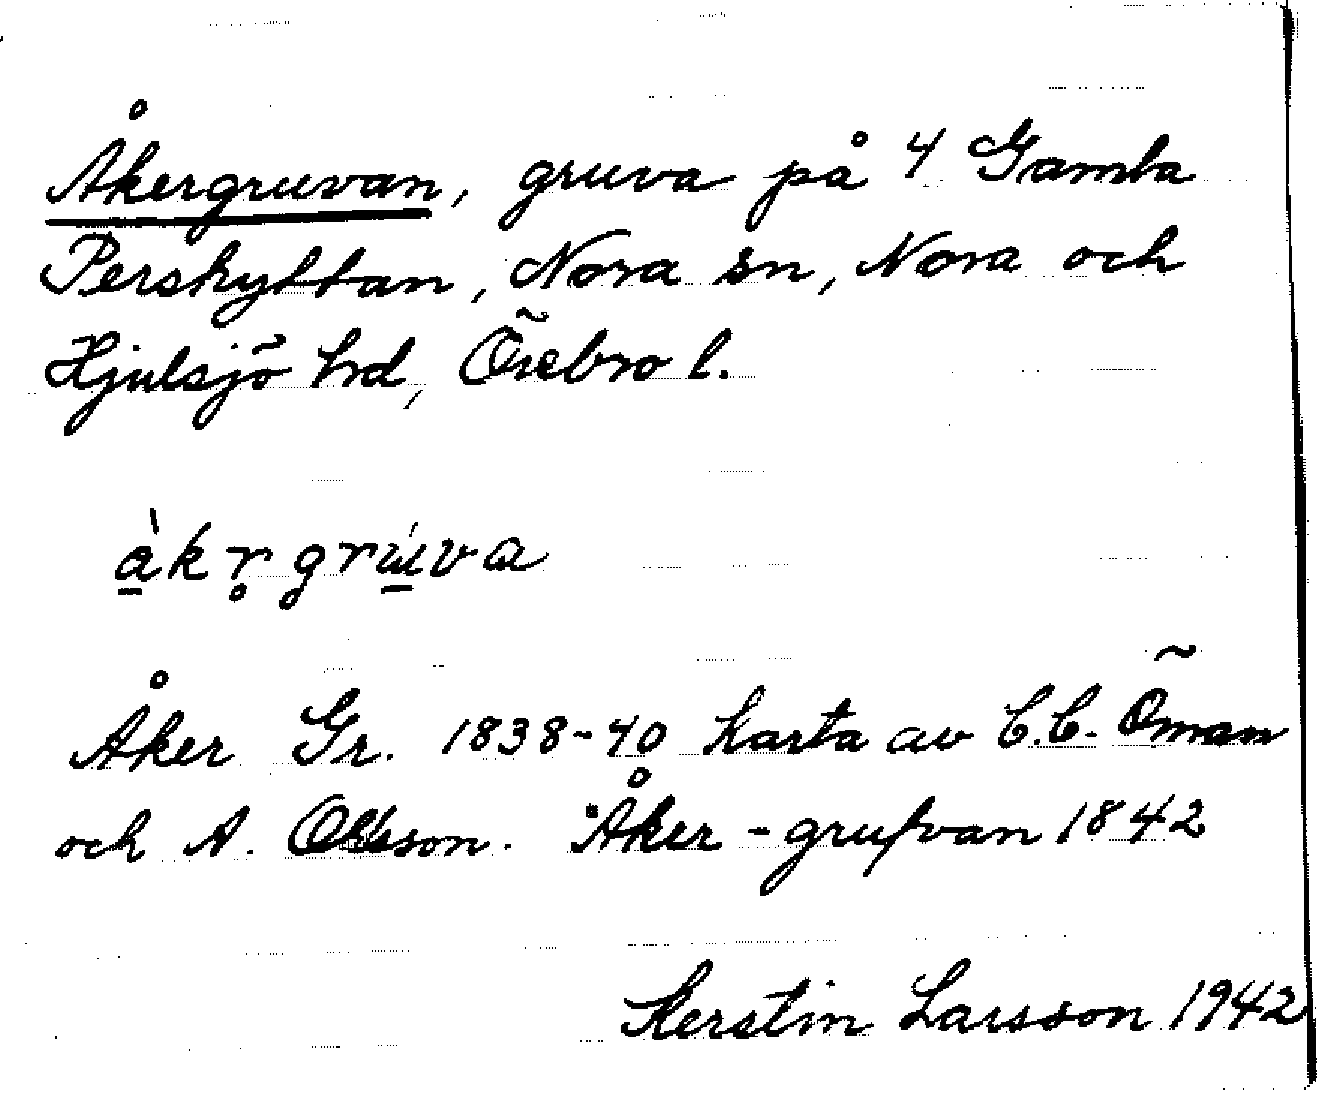 Åkergruvan, gruva på 4 Gamla
Pershyttan, Nora sn, Nora och
Hjulsjö hd, Örebro l.
àkr̥grúva
Åker Gr. 1838-40 Karta av C.C. Öman
och A. Olsson. Åker-grufvan 1842
Kerstin Larsson 1942